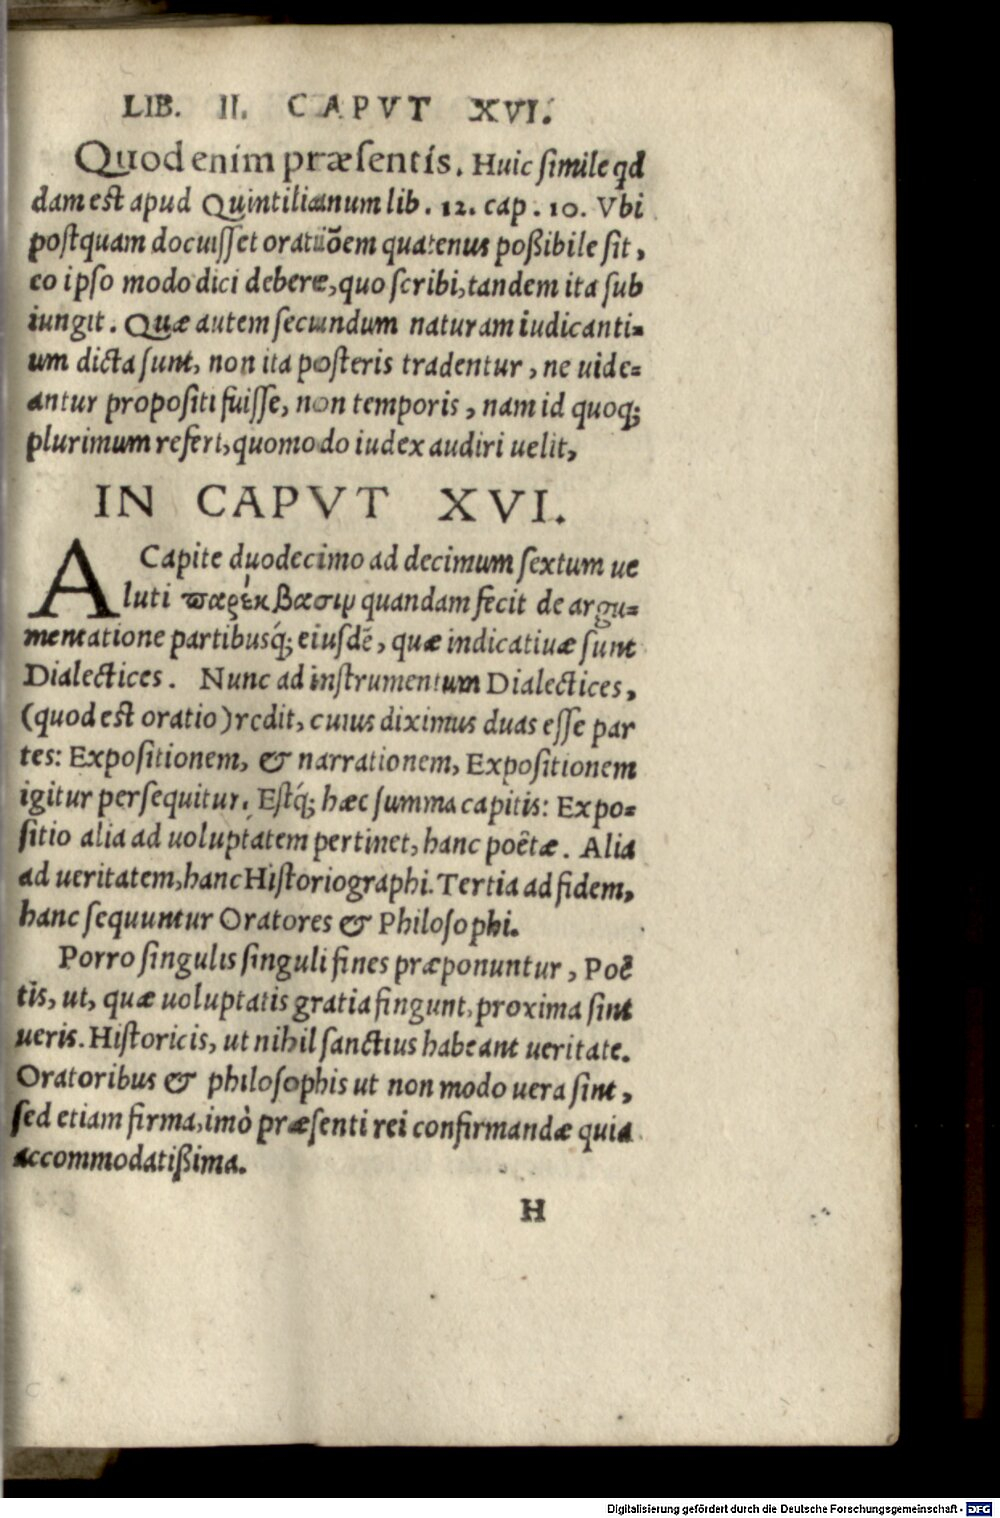 LIB. II. CAPVT XVI.
Quod enim præsentis. Huic simile qd
dam est apud Quintilianum lib. 12. cap. 10. Vbi
postquam docuisset oratiõem quatenus poßibile sit,
eo ipso modo dici debere, quo scribi, tandem ita sub
iungit. Quæ autem secundum naturam iudicanti-
um dicta sunt, non ita posteris tradentur, ne uide-
antur propositi fuisse, non temporis, nam id quoq;
plurimum refert, quomodo iudex audiri uelit,
IN CAPVT XVI.
A Capite duodecimo ad decimum sextum ue
luti παρέκβασιμ quandam fecit de argu-
mentatione partibusq́; eiusdẽ, quæ indicatiuæ sunt
Dialectices. Nunc ad instrumentum Dialectices,
(quod est oratio) redit, cuius diximus duas esse par
tes: Expositionem, & narrationem, Expositionem
igitur persequitur. Estq́; hæc summa capitis: Expo-
sitio alia ad uoluptatem pertinet, hanc poêtæ. Alia
ad ueritatem, hanc Historiographi. Tertia ad fidem,
hanc sequuntur Oratores & Philosophi.
Porro singulis singuli fines præponuntur, Poê
tis, ut, quæ uoluptatis gratia fingunt, proxima sint
ueris. Historicis, ut nihil sanctius habeant ueritate.
Oratoribus & philosophis ut non modo uera sint,
sed etiam firma, imò præsenti rei confirmandæ quia
accommodatißima.
H
Digitalisierung gefördert durch die Deutsche Forschungsgemeinschaft - DFG